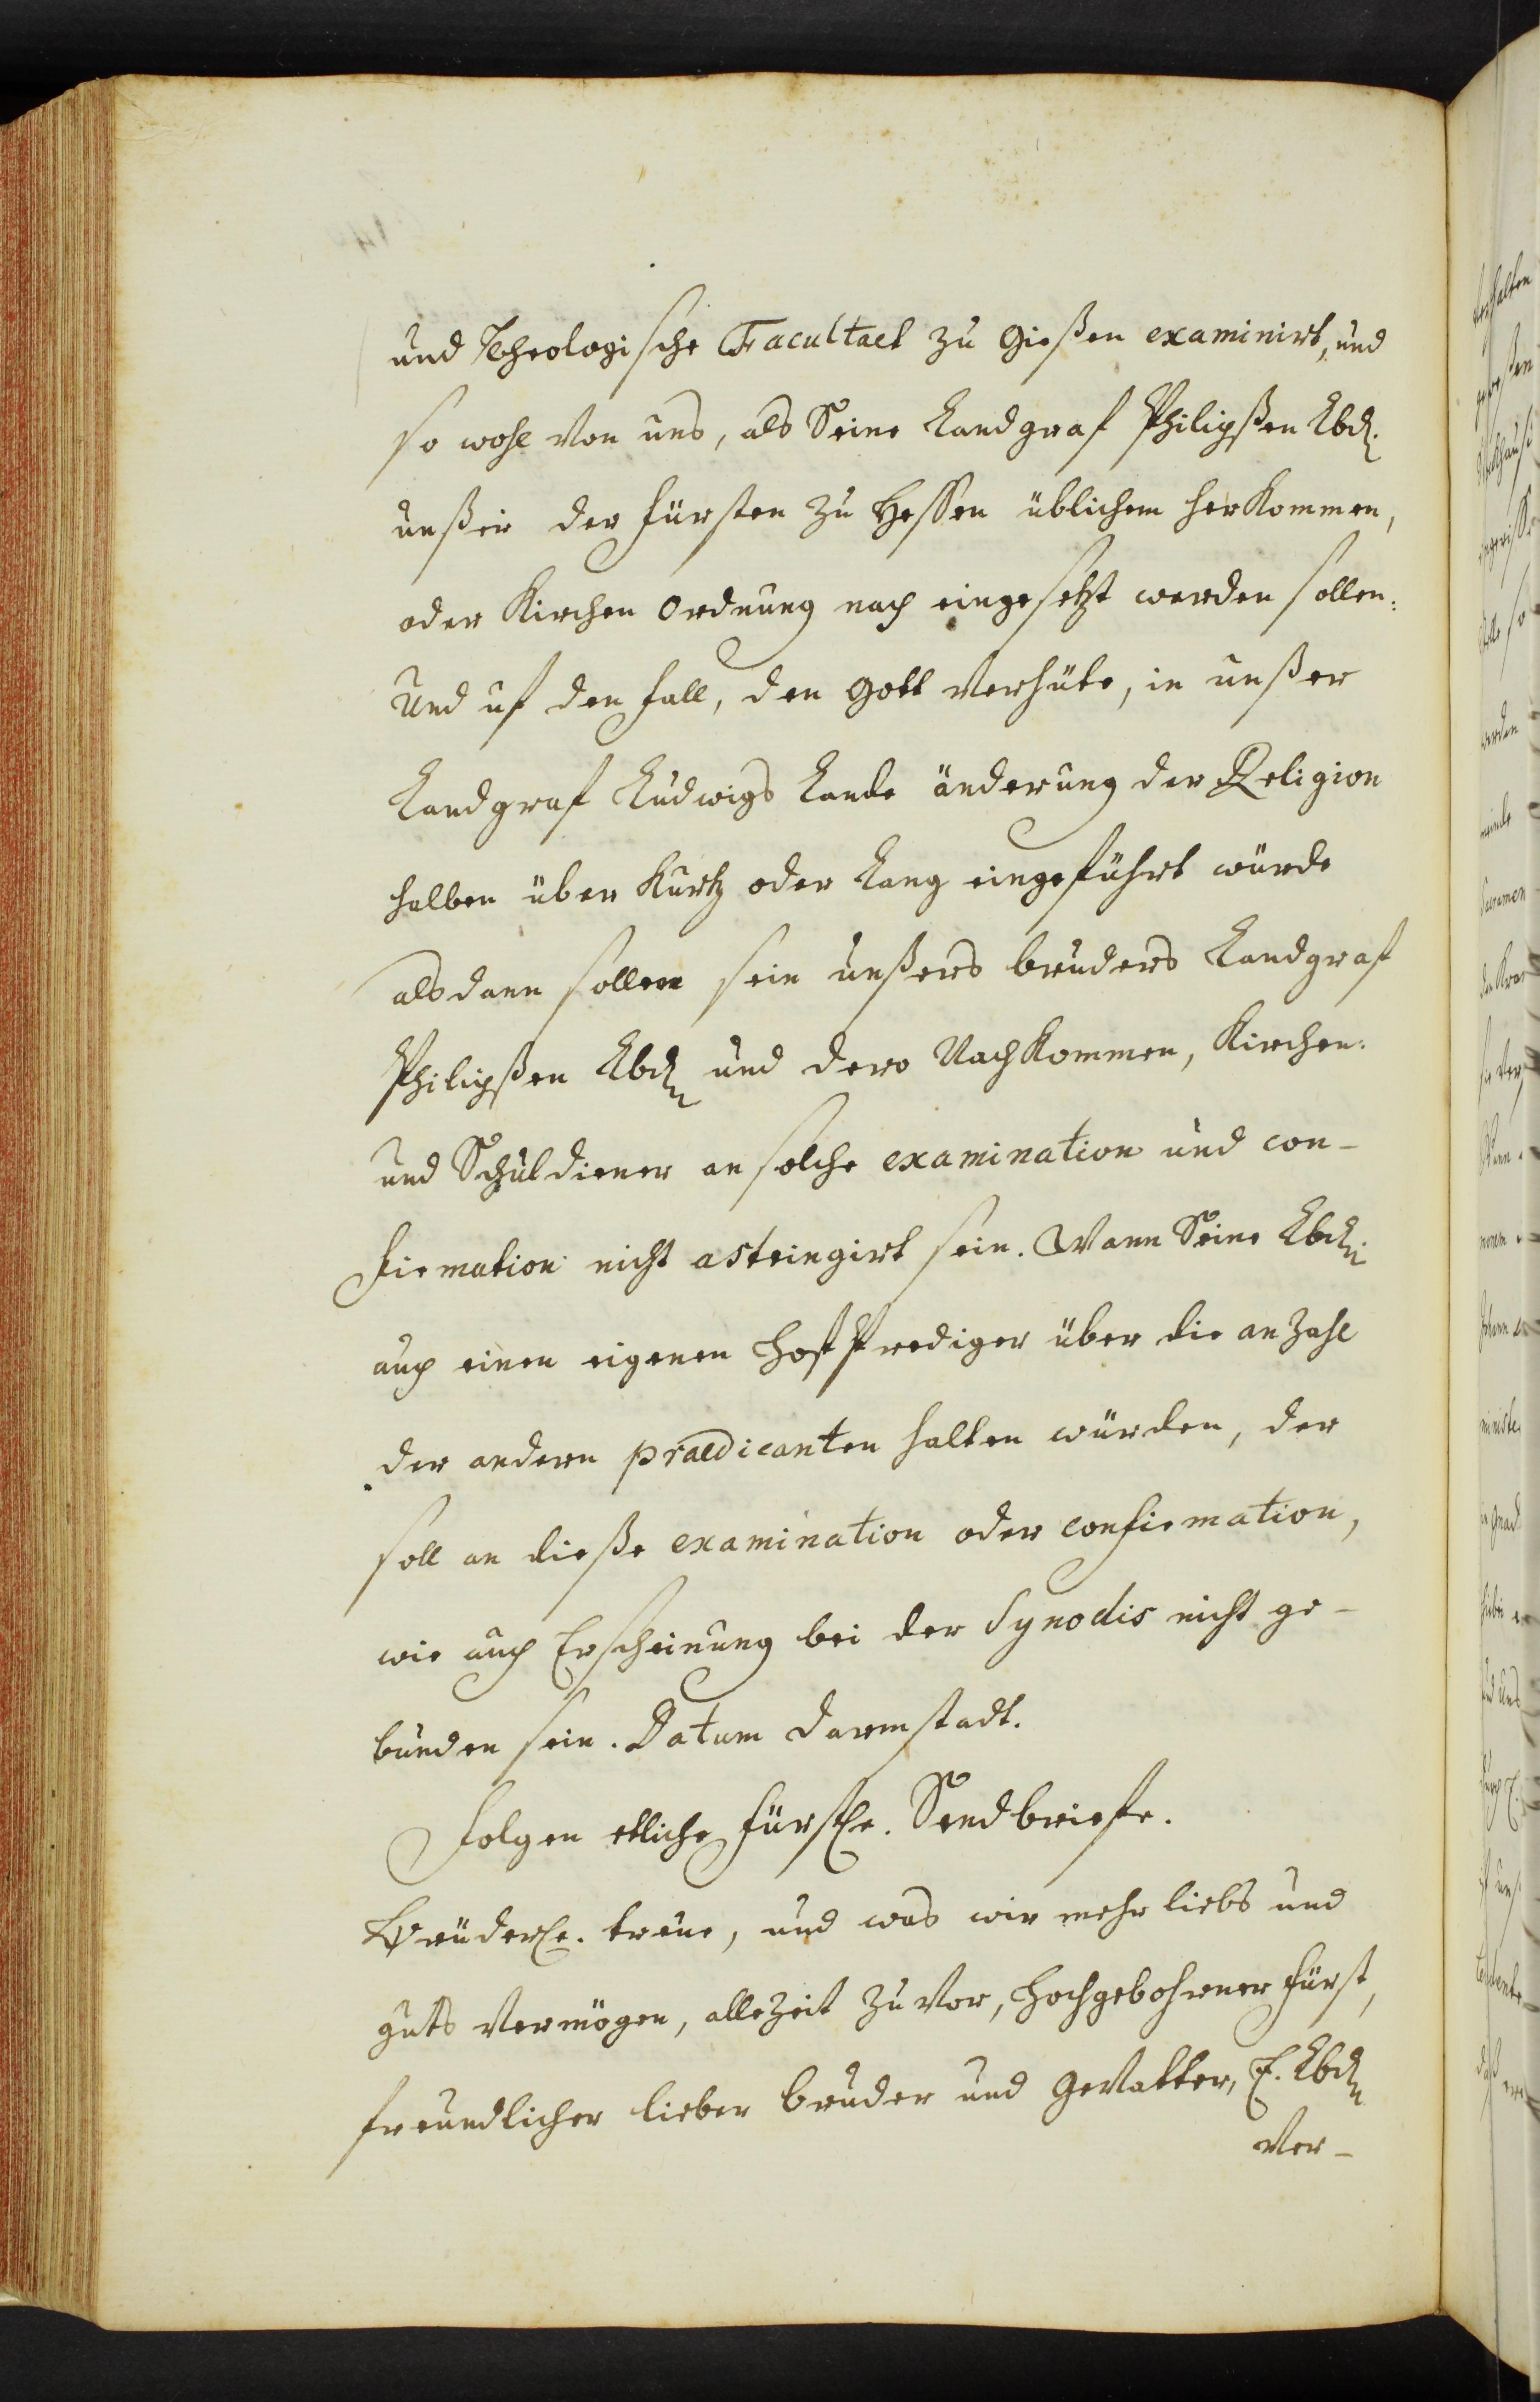 und Theologische Facultaet zu Gießen examinirt, und
so wohl von uns, als Seine Landgraf Philipßen Lbd.
unßer der Fürsten zu Hessen üblichem herkommen,
oder Kirchen Ordnung nach eingesetzt werden sollen:
Und uf den fall, den Gott verhüte, in unßer
Landgraf Ludwigs Lande änderung der Religion
halben über kurtz oder lang eingeführt würde
alsdann sollen sein unßers bruders Landgraf
Philipßen Lbd. und dero Nachkommen, Kirchen-
und Schuldiener an solche examination und con-
firmation nicht astringirt sein. Wann Seine Lbd.
auch einen eigenen Hoffprediger über die anzahl
der andern praedicanten halten würden, der
soll an dieße examination oder confirmation,
wie auch Erscheinung bei der Synodis nicht ge-
bunden sein. Datum Darmstadt.
Folgen etliche fürstl. Sendbriefe.
Brüderl. treue, und was wir mehr liebs und
guts vermögen, allezeit zuvor, Hochgebohrner Fürst,
freundlicher lieber bruder und Gevatter, E. Lbd.
ver-